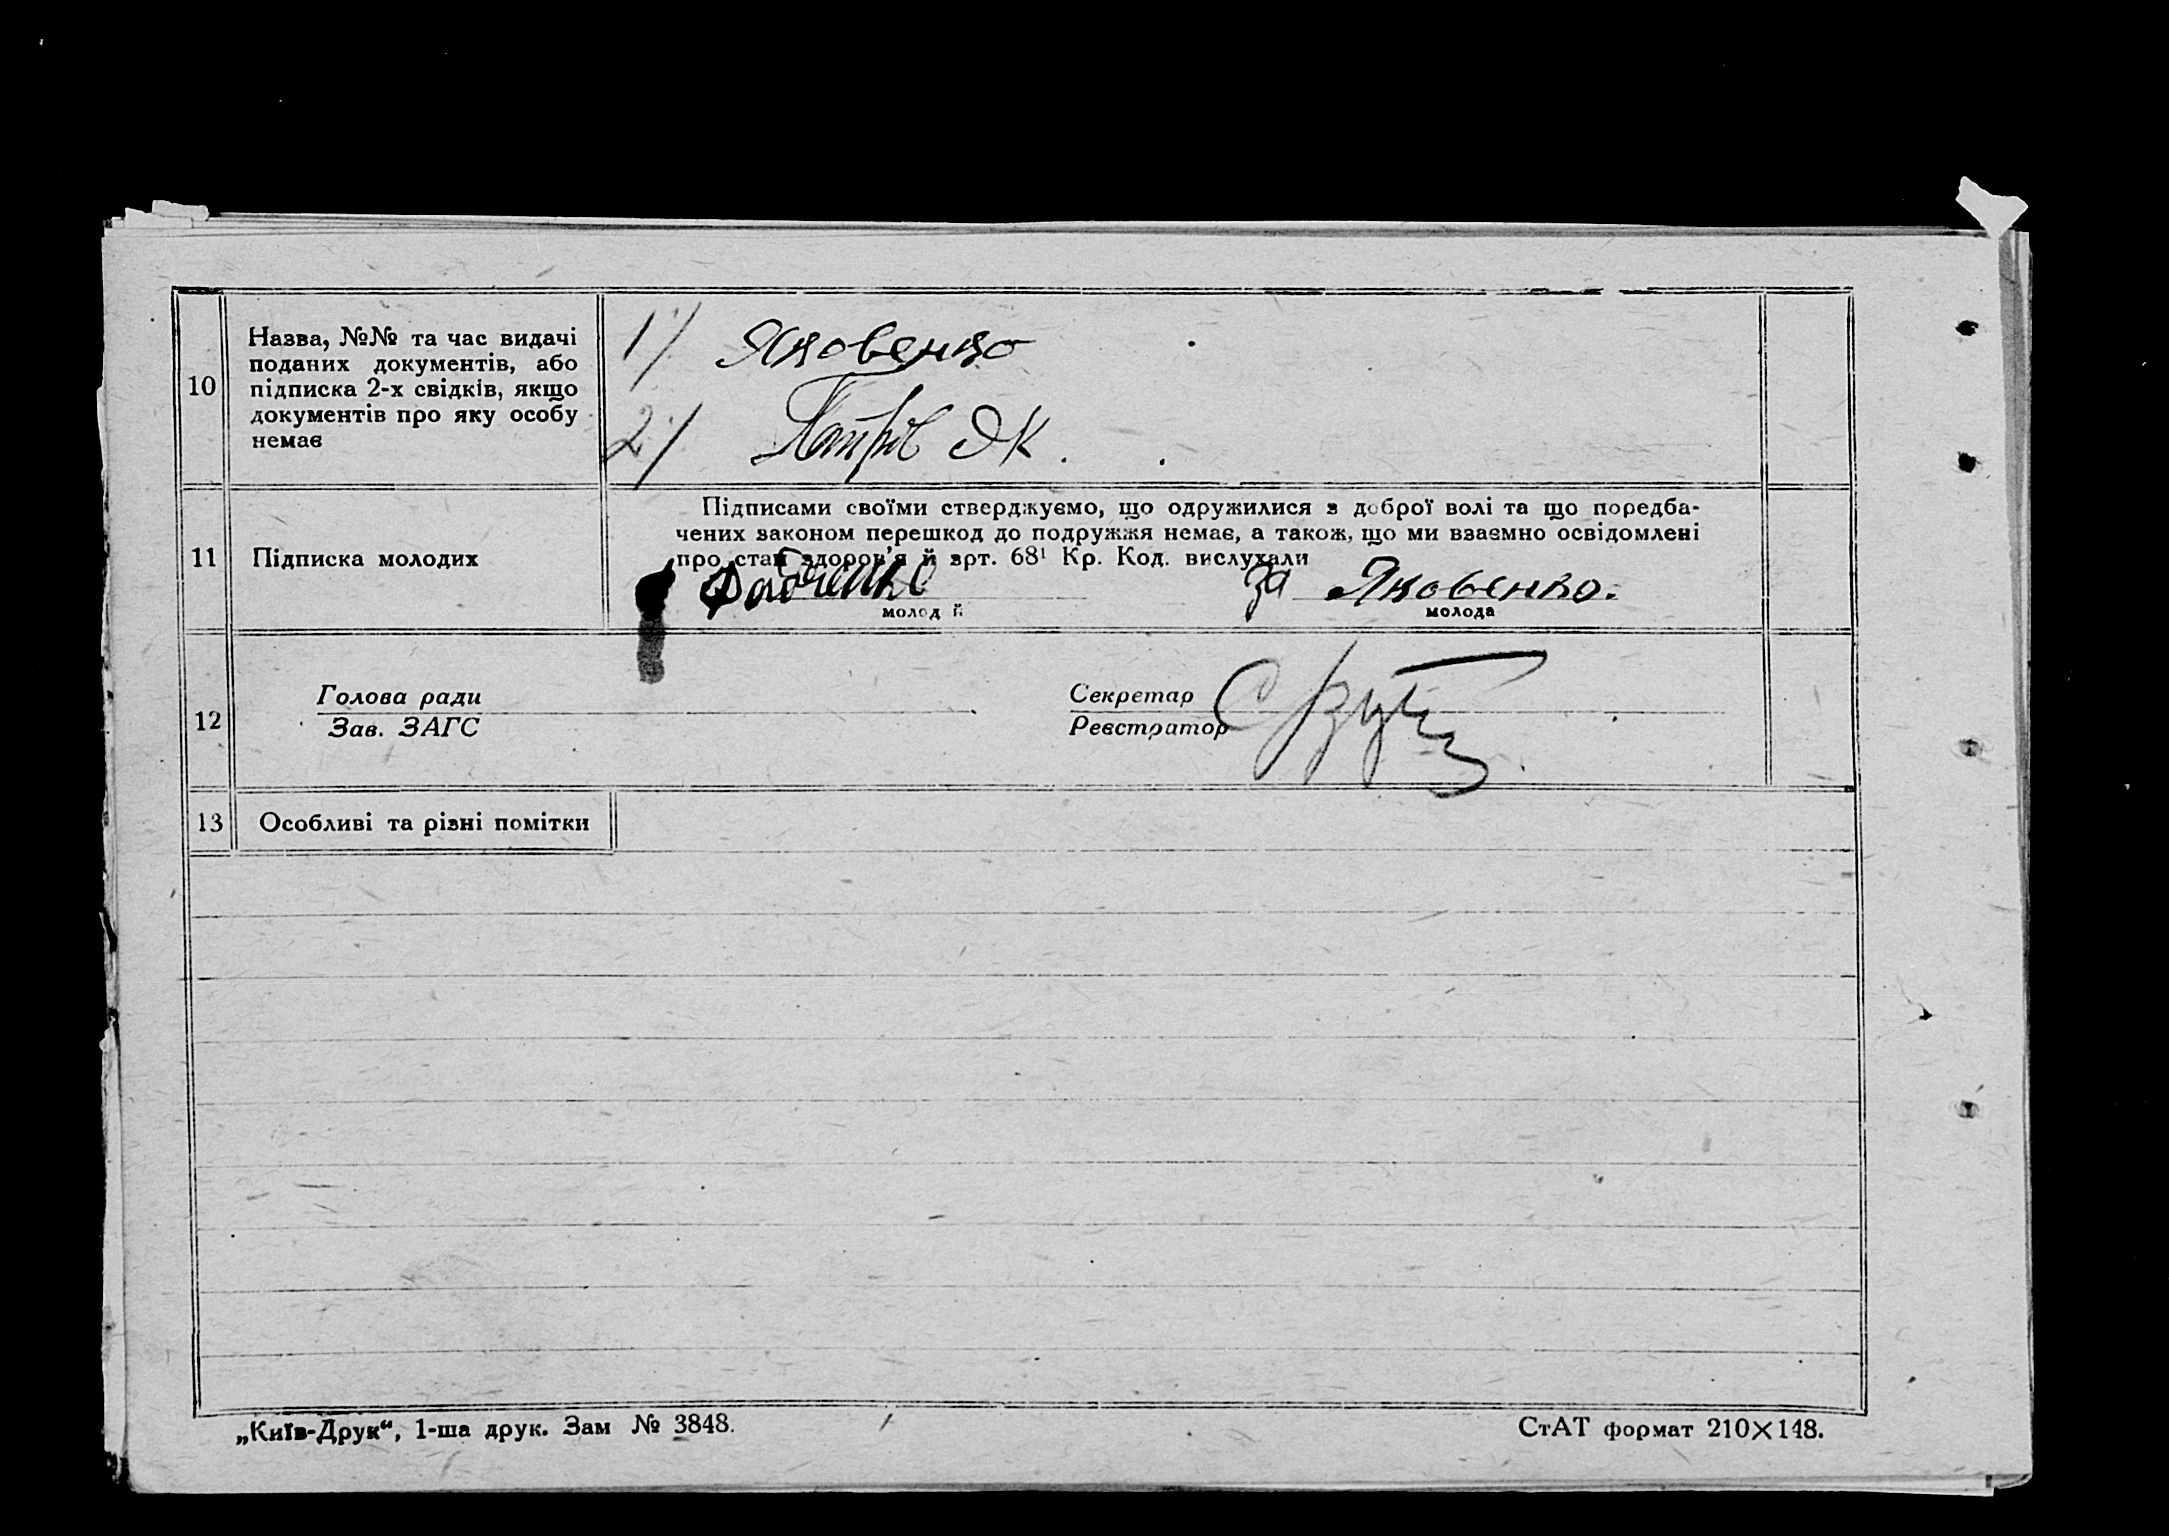 10
Назва, №№ та час видачі
поданих документів, або
підписка 2-х свідків, якщо
документів про яку особу
немає
1/ Яковенко
2/ ЯК.
11
Підписка молодих
Підписами своїми стверджуємо, що одружилися з доброї волі та що поредба-
чених законом перешкод до подружжя немає, а також, що ми взаємно освідомлені
про стан здоров'я й арт. 68¹ Кр. Код. вислухали
за Яковенко.
молодий
молода
12
Голова ради
Зав. ЗАГС
Секретар
Реєстратор
13
Особливі та різні помітки
„Київ-Друк“, 1-ша друк. Зам № 3848.
СтАТ формат 210×148.